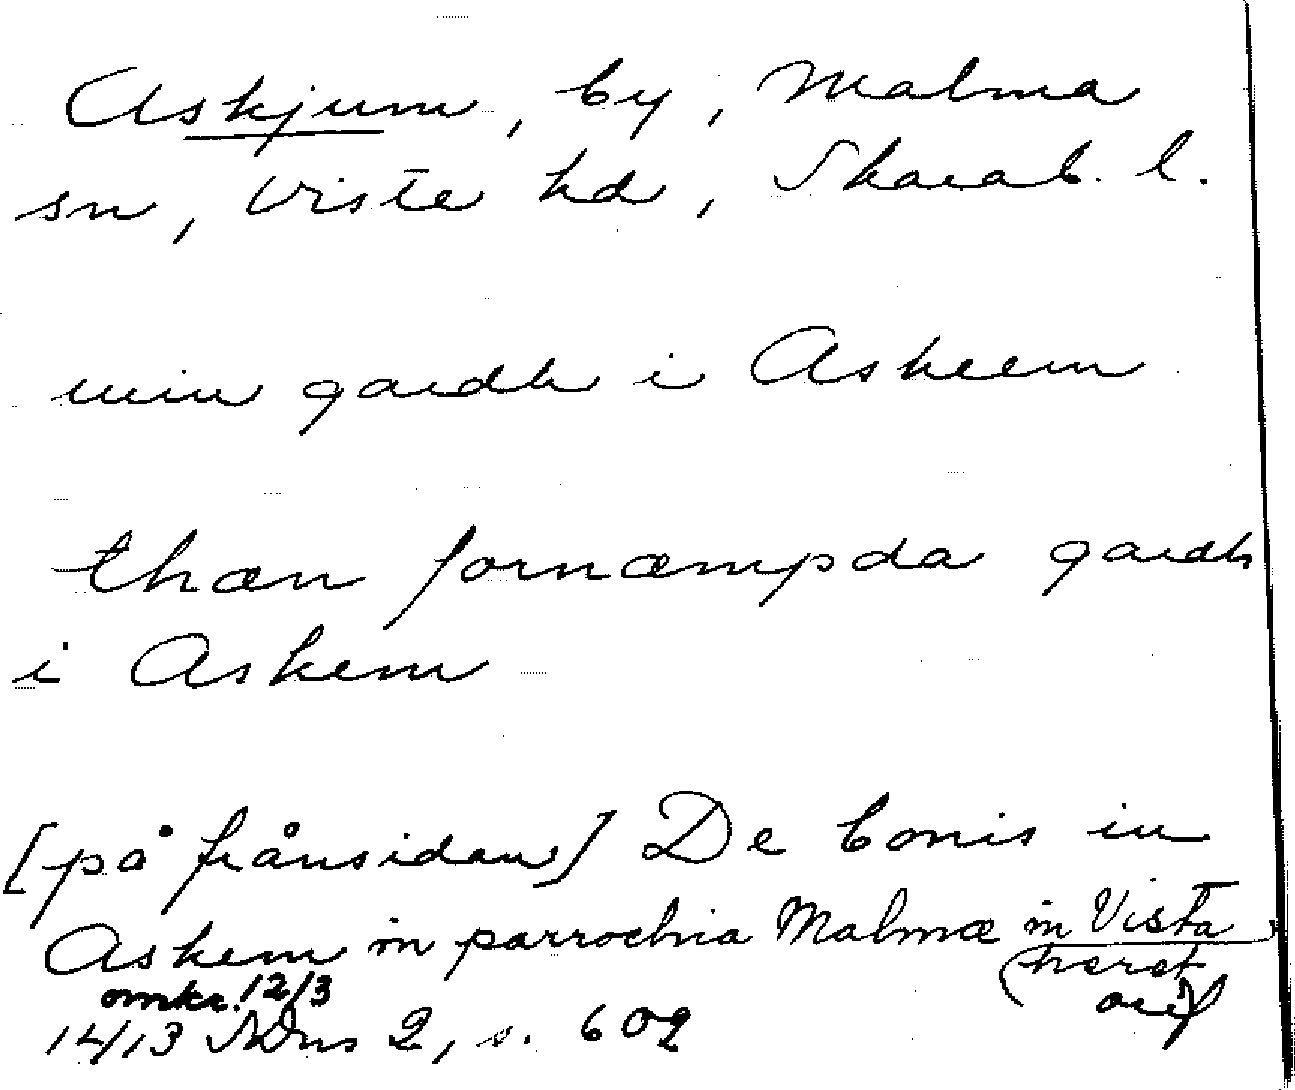 Askjum, by, Malma
sn, Viste hd, Skarab. l.
min gardh i Askeem
thæn fornæmpda gardh
i Askem
[på frånsidan] De bonis in
Askem in parrochia Malmæ in Vista
hæret
omkr. 12/3 orig
1413 SDns 2, s. 609